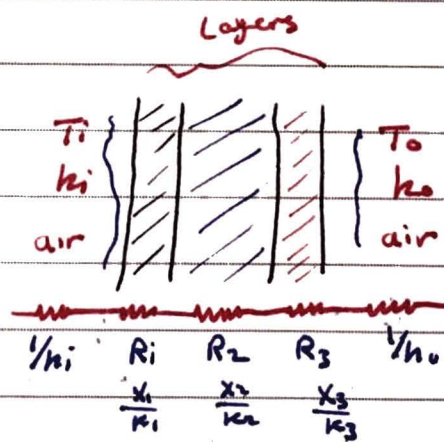 Layers
Ti To
hi ho
air air
1/hi Ri R2 R3 1/ho
x1/K1 x2/K2 x3/K3